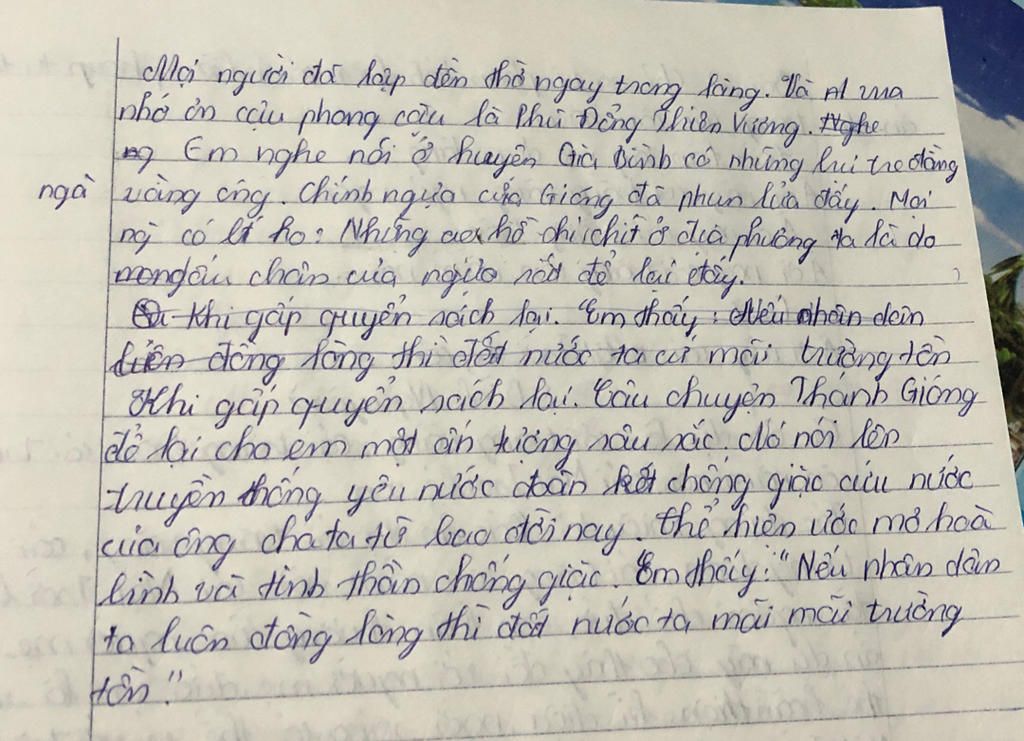 Mọi người đã lập đền thờ ngay trong làng. Và vua
nhớ ơn cậu phong cậu là Phù Đổng Thiên Vương. Nghe
ng Em nghe nói ở huyện Gia Bình có những bụi tre đằng
ngà vàng óng. Chính ngựa của Gióng đã phun lửa đấy. Mọi
ng có kể ho: Những ao hồ chi chít ở địa phương ta là do
dấu chân của ngựa sắt để lại đấy.
Khi gấp quyển sách lại. Em thấy: Nếu nhân dân
đồng lòng thì đất nước ta cứ mãi trường tồn
Khi gấp quyển sách lại. Câu chuyện Thánh Gióng
để lại cho em một ấn tượng sâu sắc, nó nói lên
truyền thống yêu nước đoàn kết chống giặc cứu nước
của ông cha ta từ bao đời nay. Thể hiện ước mơ hoà
bình và tinh thần chống giặc. Em thấy: "Nếu nhân dân
ta luôn đồng lòng thì đất nước ta mãi mãi trường
tồn."